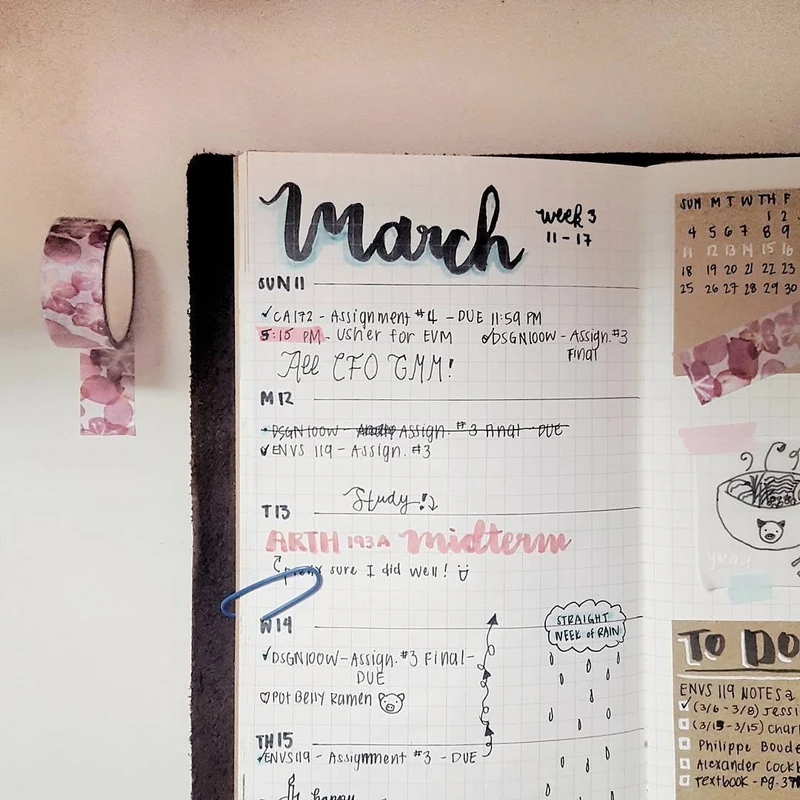 March
week 3
11-17
SUN 11
✓CA172 - Assignment #4 - DUE 11:59 PM
5:15 PM - Usher for EVM
✓DSGN100W - Assign. #3
Final
All CFO GMM!
M12
DSGN100W - Assign. #3 Final - DUE
✓ENVS 119 - Assign. #3
Study!
T13
ARTH 193A Midterm
pretty sure I did well!
W14
STRAIGHT
WEEK of RAIN
✓DSGN100W - Assign. #3 Final -
DUE
♡ Pot Belly Ramen
TH15
✓ENVS119 - Assignment #3 - DUE
happy
SUN M T W TH F
1 2
4 5 6 7 8 9
11 12 13 14 15 16
18 19 20 21 22 23
25 26 27 28 29 30
yum!
TO DO
ENVS 119 NOTES
✓ (3/6 - 3/8) Jessi
(3/13 - 3/15) Charl
Philippe Boude
Alexander Cockb
Textbook - pg. 37